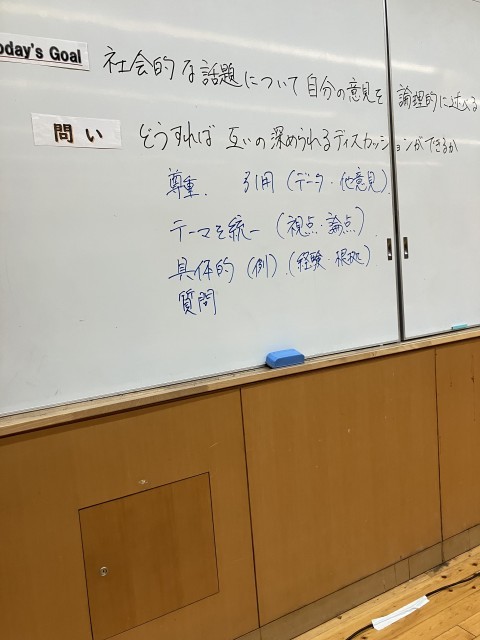 oday's Goal 社会的な話題について自分の意見を論理的に述べる
問い どうすれば互いの深められるディスカッションができるか
尊重. 引用(データ・他意見).
テーマを統一(視点・論点).
具体的(例).(経験・根拠)
質問